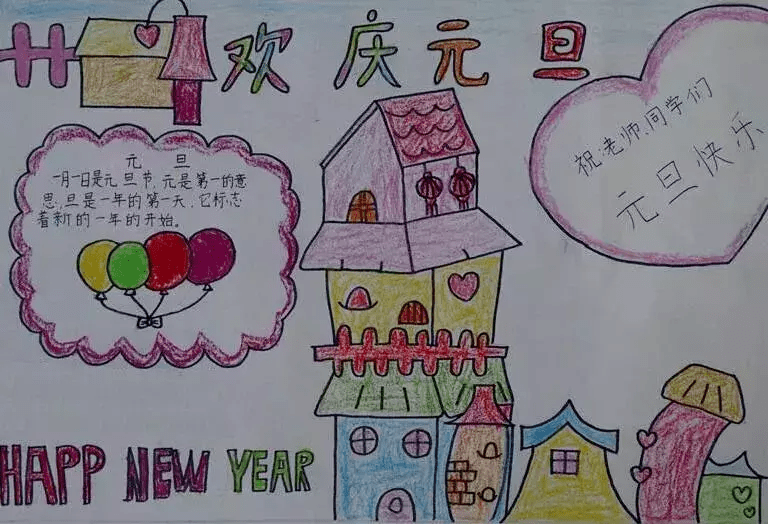 欢庆元旦
祝:老师、同学们
元旦快乐
元 旦
一月一日是元旦节,元是第一的意
思,旦是一年的第一天,它标志
着新的一年的开始。
HAPP NEW YEAR